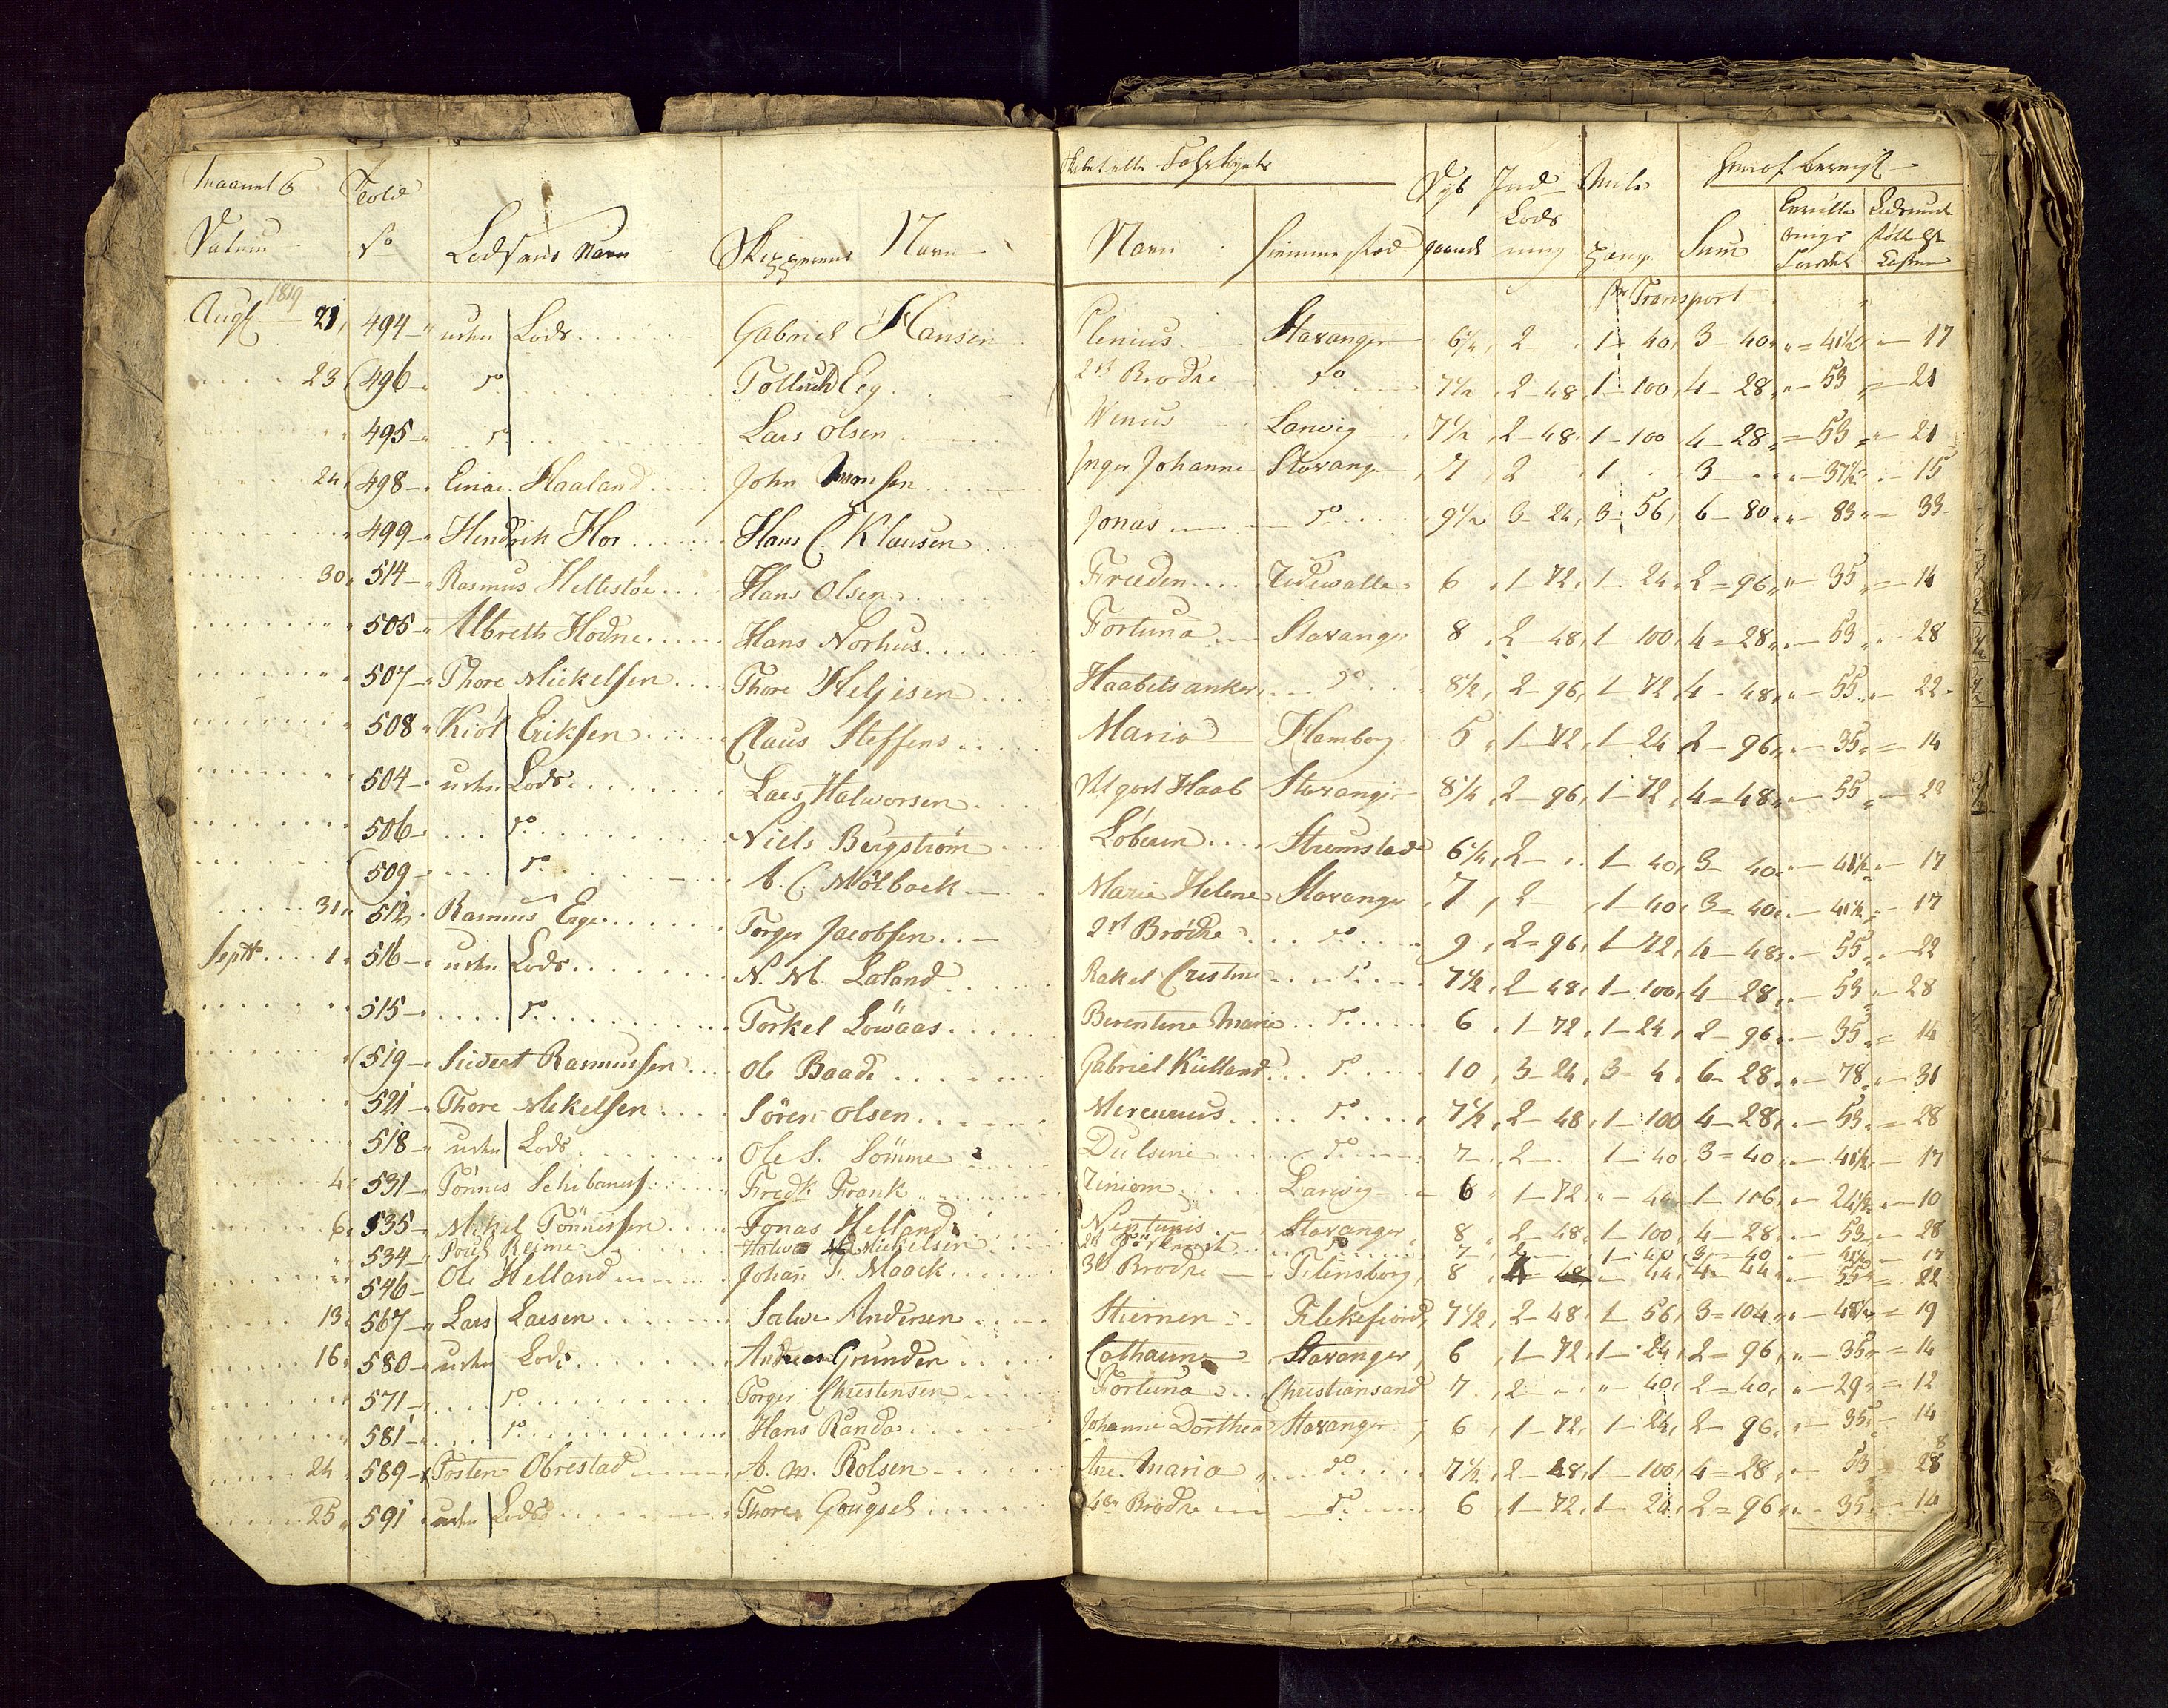 Maanet &
Datum
Told
No
Lodsens Navn
Skippernes Navn
Navn
Hiemme stæd
Dyb gaaende
Ind Lods ning
Mile penge
Sum
Transport
1819
Augt 21 494 uvhn Lods Gabriel Hansen Plenius Stavanger 6 1/4 2 1 40 3 40 41 1/2 17
23 496 do Tollech Eeg 2de Brødre do 7 1/2 2 48 1 100 4 28 53 21
495 do Lars Olsen Wenus Larwig 7 1/2 2 48 1 100 4 28 53 21
24 498 Einar Haaland John Inger Johanne Stavanger 7 2 1 3 37 1/2 15
499 Hendrik Hor Hans C. Klausen Jonas do 9 1/2 3 24 3 56 6 80 83 33
30 514 Rasmus Hellestöe Hans Olsen Freeden Udewalla 6 1 72 1 24 2 96 35 14
505 Albreth Hodne Hans Norhus Fortuna Stavanger 8 2 48 1 100 4 28 53 28
507 Thore Mickelsen Thore Heljesen Haabets anker do 8 1/2 2 96 1 72 4 48 55 22
508 Kiöl Eriksen Claus Steffens Maria Hamborg 5 1 72 1 24 2 96 35 14
504 uvhn Lods Lars Halworsen Et godt Haab Stavanger 8 1/4 2 96 1 72 4 48 55 22
506 do Niels Bergström Löberen Strömstad 6 1/4 2 1 40 3 40 41 1/2 17
509 do A. C. Mölback Marie Helene Stavanger 7 2 1 40 3 40 41 1/2 17
31 512 Rasmus Ege Torger Jacobsen 2de Brödre do 9 2 96 1 72 4 48 55 22
Septr 1 516 uvhn Lods N. M. Loland Rakel Cristine do 7 1/2 2 48 1 100 4 28 53 28
515 do Torkel Löwaas Berentine Marie do 6 1 72 1 24 2 96 35 14
519 Siedeet Rasmussen Ole Baade Gabriel Kielland do 10 3 24 3 4 6 28 78 31
521 Thore Mekelsen Sören Olsen Mercurius do 7 1/2 2 48 1 100 4 28 53 28
518 uvhn Lods Ole S. Sömme Dulsine do 7 2 1 40 3 40 41 1/2 17
4 531 Tönnes Fredk Frank Larwig 6 1 72 44 1 116 24 1/2 10
6 535 Mikel Tönnessen Jonas Helland Neptunis Stavanger 8 2 48 1 100 4 28 53 28
534 Poul Reime Halwor Mickelsen do 7 2 1 40 3 40 41 1/2 17
546 Ole Helland Johan F. Maack 3de Brodre Flensborg 8 44 4 44 55 22
13 567 Lars Larsen Salwe Andersen Stiernen Flekefiord 7 1/2 2 48 1 56 3 104 48 1/2 19
16 580 uvhn Lods Andreas Grunden Cathaune Stavanger 6 1 72 1 24 2 96 35 14
571 do Torger Christensen Fortuna Christiansand 7 2 40 2 40 29 12
581 do Hans Randa Johanne Dorthea Stavanger 6 1 72 1 24 2 96 35 14
24 589 Tosten Obrestad A. M. Rolsen Ane Maria do 7 1/2 2 48 1 100 4 28 53 28
25 591 uvhn Lods Thore Gougsel 4de Brödre do 6 1 72 1 24 2 96 35 14